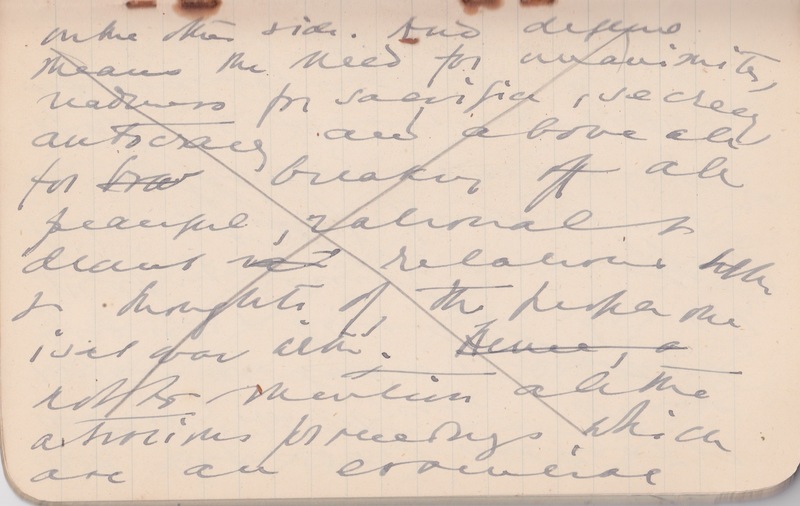 on the other side. And defence
means the need for unanimity,
readiness for sacrifice, secrecy
autocracy and above all
for breaking off all
peaceful, rational &
decent relations
& thoughts of the people one
is at war with. Hence, a
not to mention all the
atrocious proceedings which
are an